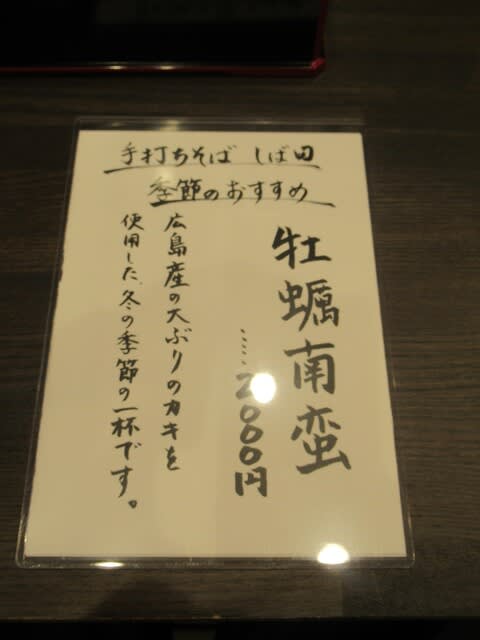 手打ちそば しば田
季節のおすすめ
牡蠣南蛮
……2000円
広島産の大ぶりのカキを
使用した、冬の季節の一杯です。